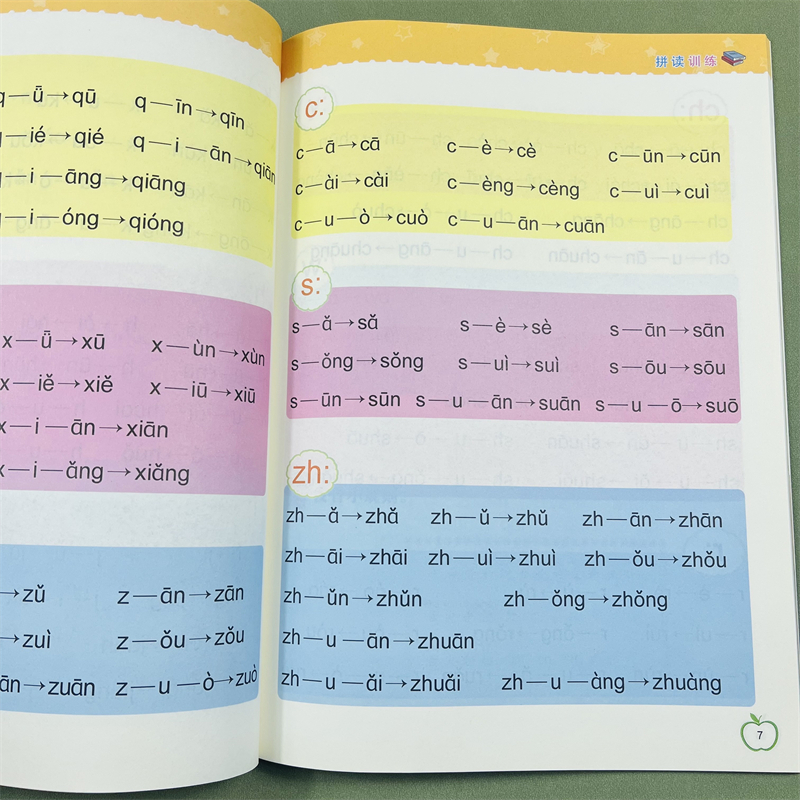 q—ǖ→qū q—īn→qīn
q—ié→qié q—i—ān→qiān
q—i—āng→qiāng
q—i—óng→qióng
x—ǖ→xū x—ùn→xùn
x—iě→xiě x—iū→xiū
x—i—ān→xiān
x—i—ǎng→xiǎng
→zǔ z—ān→zān
→zuì z—ǒu→zǒu
ān→zuān z—u—ò→zuò
拼读训练
c:
c—ā→cā c—è→cè c—ūn→cūn
c—ài→cài c—èng→cèng c—uì→cuì
c—u—ò→cuò c—u—ān→cuān
s:
s—ǎ→sǎ s—è→sè s—ān→sān
s—ǒng→sǒng s—uì→suì s—ōu→sōu
s—ūn→sūn s—u—ān→suān s—u—ō→suō
zh:
zh—ǎ→zhǎ zh—ǔ→zhǔ zh—ān→zhān
zh—āi→zhāi zh—uì→zhuì zh—ǒu→zhǒu
zh—ǔn→zhǔn zh—ǒng→zhǒng
zh—u—ān→zhuān
zh—u—ǎi→zhuǎi zh—u—àng→zhuàng
7